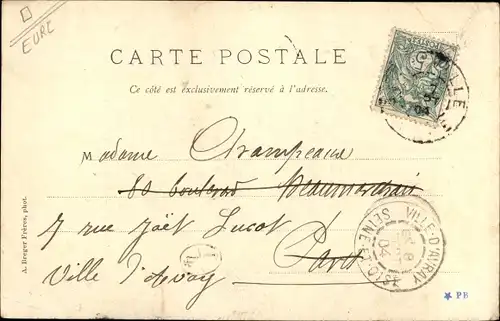 EURE
CARTE POSTALE
Ce côté est exclusivement réservé à l'adresse.
Madame Champeaux
80 boulevard Beaumarchais
7 rue Joël Lucot
Paris
Ville d'Avray
A. Breger Frères, phot.
VILLE-D'AVRAY
SEINE-ET-OISE
04
VILLE
04
★ PB